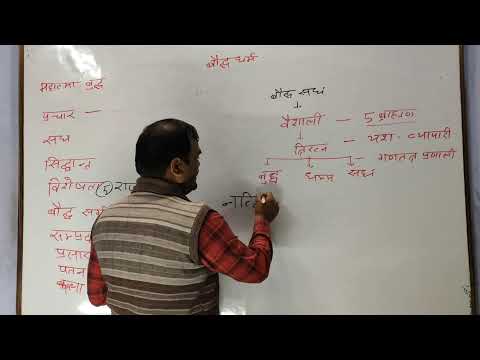 बौद्ध धर्म
महात्मा बुद्ध
प्रचार
संघ
सिद्धान्त
विशेषता
बौद्ध
पतन
कला
बौद्ध संघ
वैशाली — 5 ब्राह्मण
त्रिरत्न — यश - व्यापारी
गणतंत्र प्रणाली
बुद्ध धम्म संघ